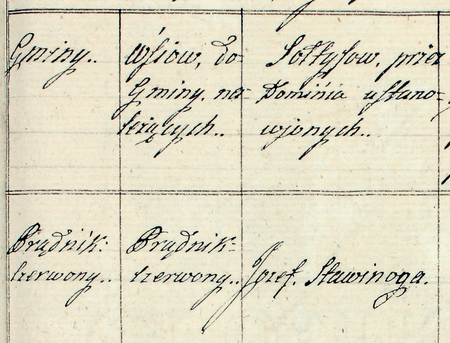 Gminy..
Wsiow, do
Gminy. na-
leżących..
Sołtysow, przez
Dominia ustano-
wjonych..
Prądnik-
czerwony..
Prądnik-
czerwony..
Jozef. Sławinoga.